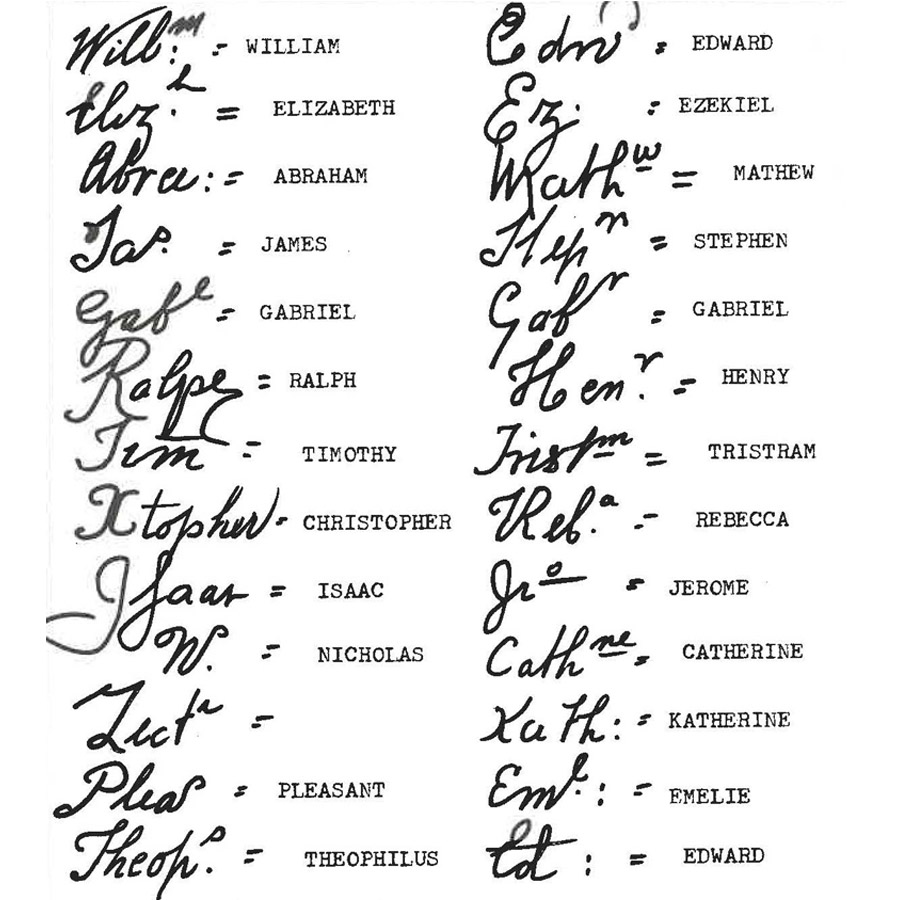 Will:m = WILLIAM
Eliz.h = ELIZABETH
Abra: = ABRAHAM
Jas. = JAMES
Gabl = GABRIEL
Ralpe = RALPH
Tim = TIMOTHY
Xtopher = CHRISTOPHER
Isaac = ISAAC
N. = NICHOLAS
=
Pleas = PLEASANT
Theop.s = THEOPHILUS
Edw = EDWARD
Ez. = EZEKIEL
Mathw = MATHEW
Stepn = STEPHEN
Gabr = GABRIEL
Hen.r = HENRY
Tristm = TRISTRAM
Reb.a = REBECCA
Jro = JEROME
Cathne = CATHERINE
Kath: = KATHERINE
Eml.: = EMELIE
Ed: = EDWARD